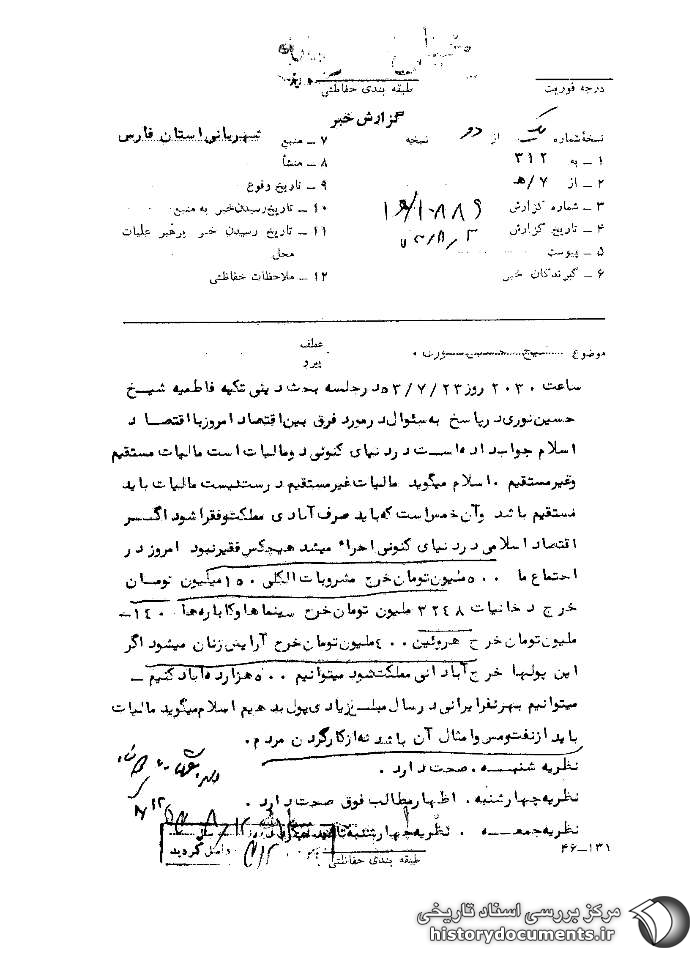 درجه فوریت
طبقه بندی حفاظتی
گزارش خبر
نسخهٔ شماره یک از دو نسخه
۱ – به ۳۱۲
۲ – از ۷/هـ
۳ – شماره گزارش
۴ – تاریخ گزارش
۵ – پیوست
۶ – گیرندگان خبر
۷ – منبع شهربانی استان فارس
۸ – منشأ
۹ – تاریخ وقوع
۱۰ – تاریخ رسیدن خبر به منبع
۱۱ – تاریخ رسیدن خبر برهبر عملیات
محل
۱۲ – ملاحظات حفاظتی
عطف
پیرو
موضوع شیخ حسین نوری
ساعت ۲۰۳۰ روز ۵۳/۷/۲۳ در جلسه بحث دینی تکیه فاطمیه شیخ
حسین نوری در پاسخ به سئوال در مورد فرق بین اقتصاد امروز با اقتصاد
اسلام جواب داده است در دنیای کنونی دو مالیات است مالیات مستقیم
وغیر مستقیم . اسلام میگوید مالیات غیر مستقیم درست نیست مالیات باید
مستقیم باشد وآن خمس است که باید صرف آبادی مملکت و فقرا شود اگر
اقتصاد اسلامی در دنیای کنونی اجراء میشد هیچکس فقیر نبود امروز در
اجتماع ما ۵۰۰ ملیون تومان خرج مشروبات الکلی ۱۵۰ میلیون تومان
خرج دخانیات ۳۲۴۸ ملیون تومان خرج سینماها و کاباره ها ۱۴۰ –
ملیون تومان خرج هروئین ۴۰۰ ملیون تومان خرج آرایش زنان میشود اگر
این پولها خرج آبادانی مملکت شود میتوانیم ۵۰۰ هزار ده آباد کنیم –
میتوانیم بهر نفر ایرانی در سال مبلغ زیادی پول بدهیم اسلام میگوید مالیات
باید از نفت و مس و امثال آن باشد نه از کار گردن مردم .
نظریه شنبه . صحت دارد .
نظریه چهارشنبه . اظهار مطالب فوق صحت دارد .
نظریه جمعه . نظریه چهارشنبه
واصل گردید
طبقه بندی حفاظتی
۴۶–۱۳۱
مرکز بررسی اسناد تاریخی
historydocuments.ir